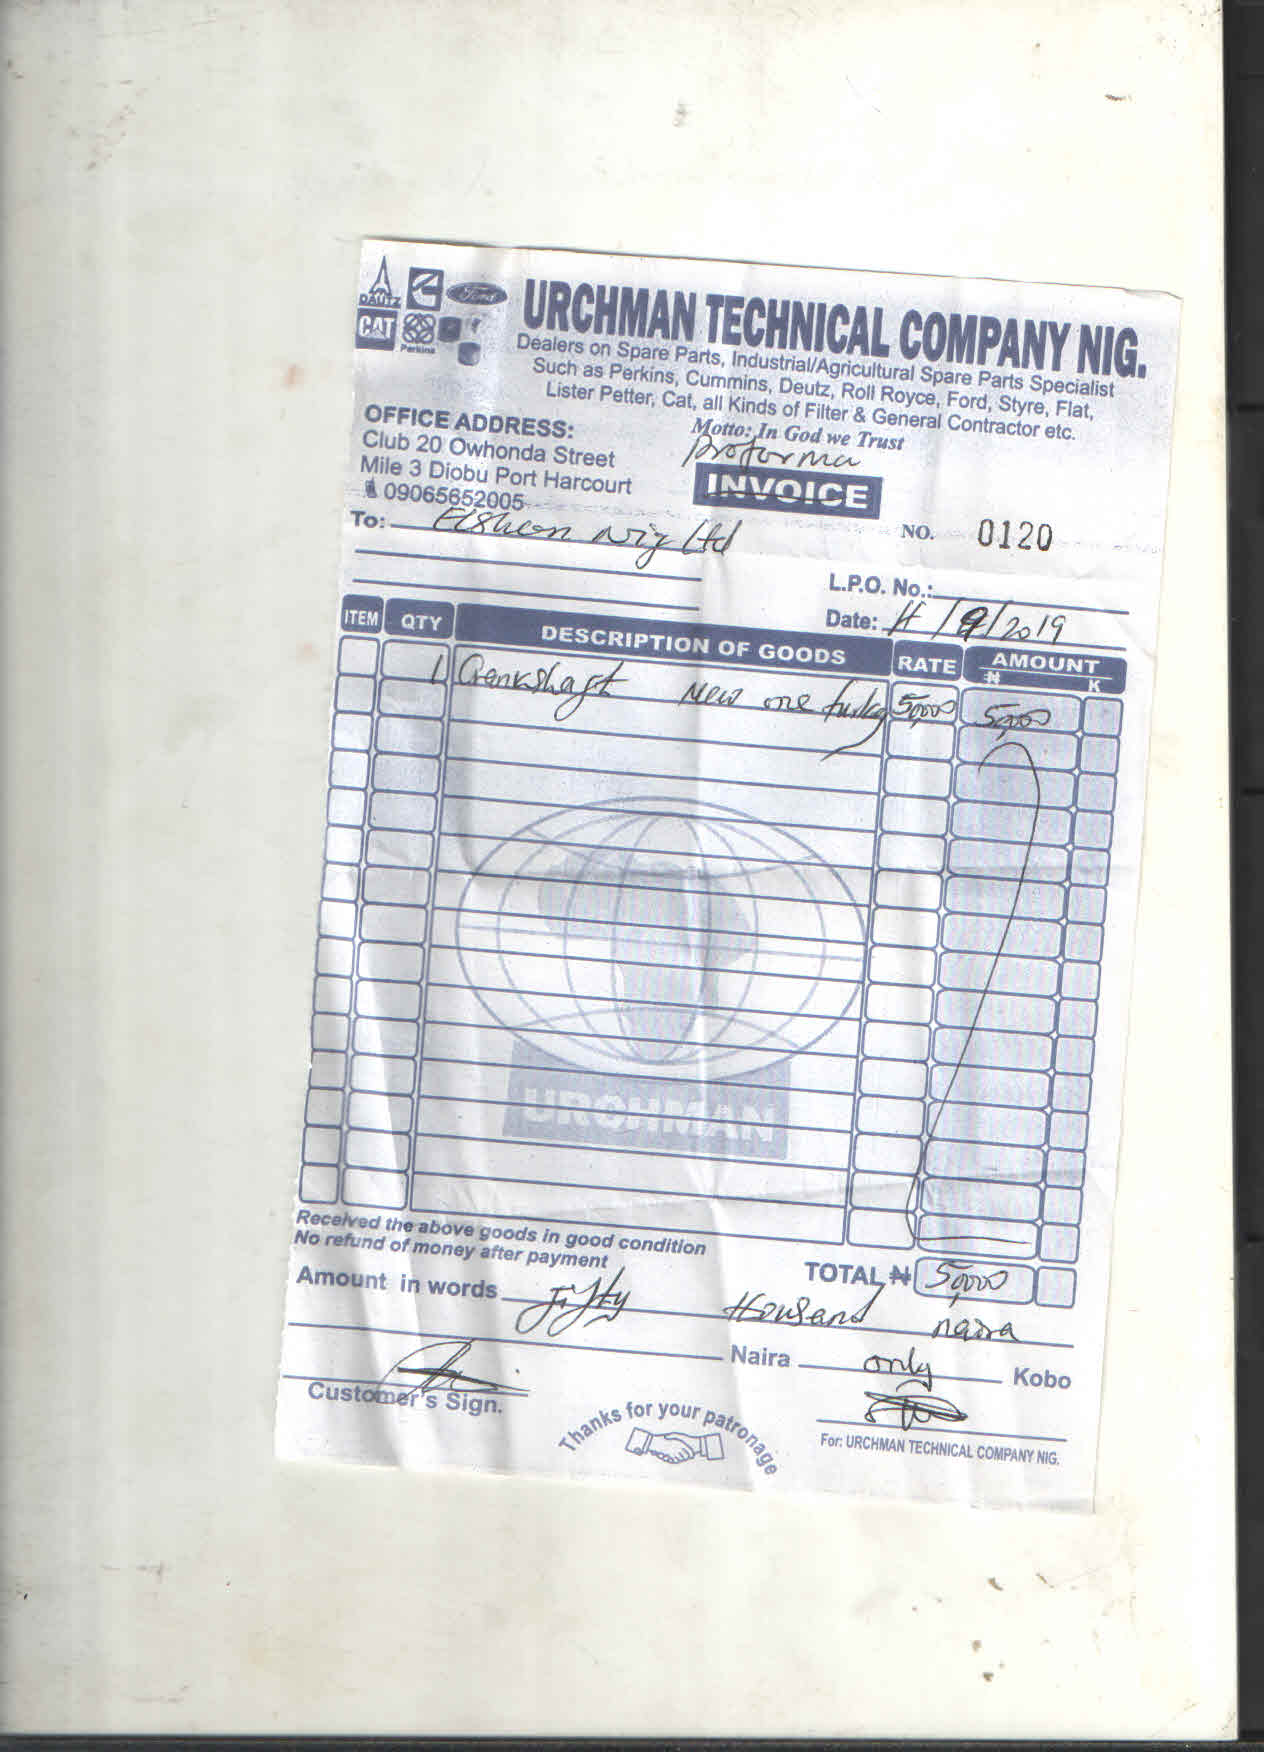 DAUTZ
Ford
CAT
Perkins
URCHMAN TECHNICAL COMPANY NIG.
Dealers on Spare Parts, Industrial/Agricultural Spare Parts Specialist
Such as Perkins, Cummins, Deutz, Roll Royce, Ford, Styre, Flat,
Lister Petter, Cat, all Kinds of Filter & General Contractor etc.
Motto: In God we Trust
OFFICE ADDRESS:
Club 20 Owhonda Street
Mile 3 Diobu Port Harcourt
09065652005
proforma
INVOICE
To: Nig Ltd
NO. 0120
L.P.O. No.:
Date: /9/2019
ITEM QTY DESCRIPTION OF GOODS RATE AMOUNT
₦ K
1 Crankshaft New one 50,000 50,000
URCHMAN
Received the above goods in good condition
No refund of money after payment
TOTAL ₦ 50,000
Amount in words Fifty thousand naira
Naira only Kobo
Customer's Sign.
Thanks for your patronage
For: URCHMAN TECHNICAL COMPANY NIG.